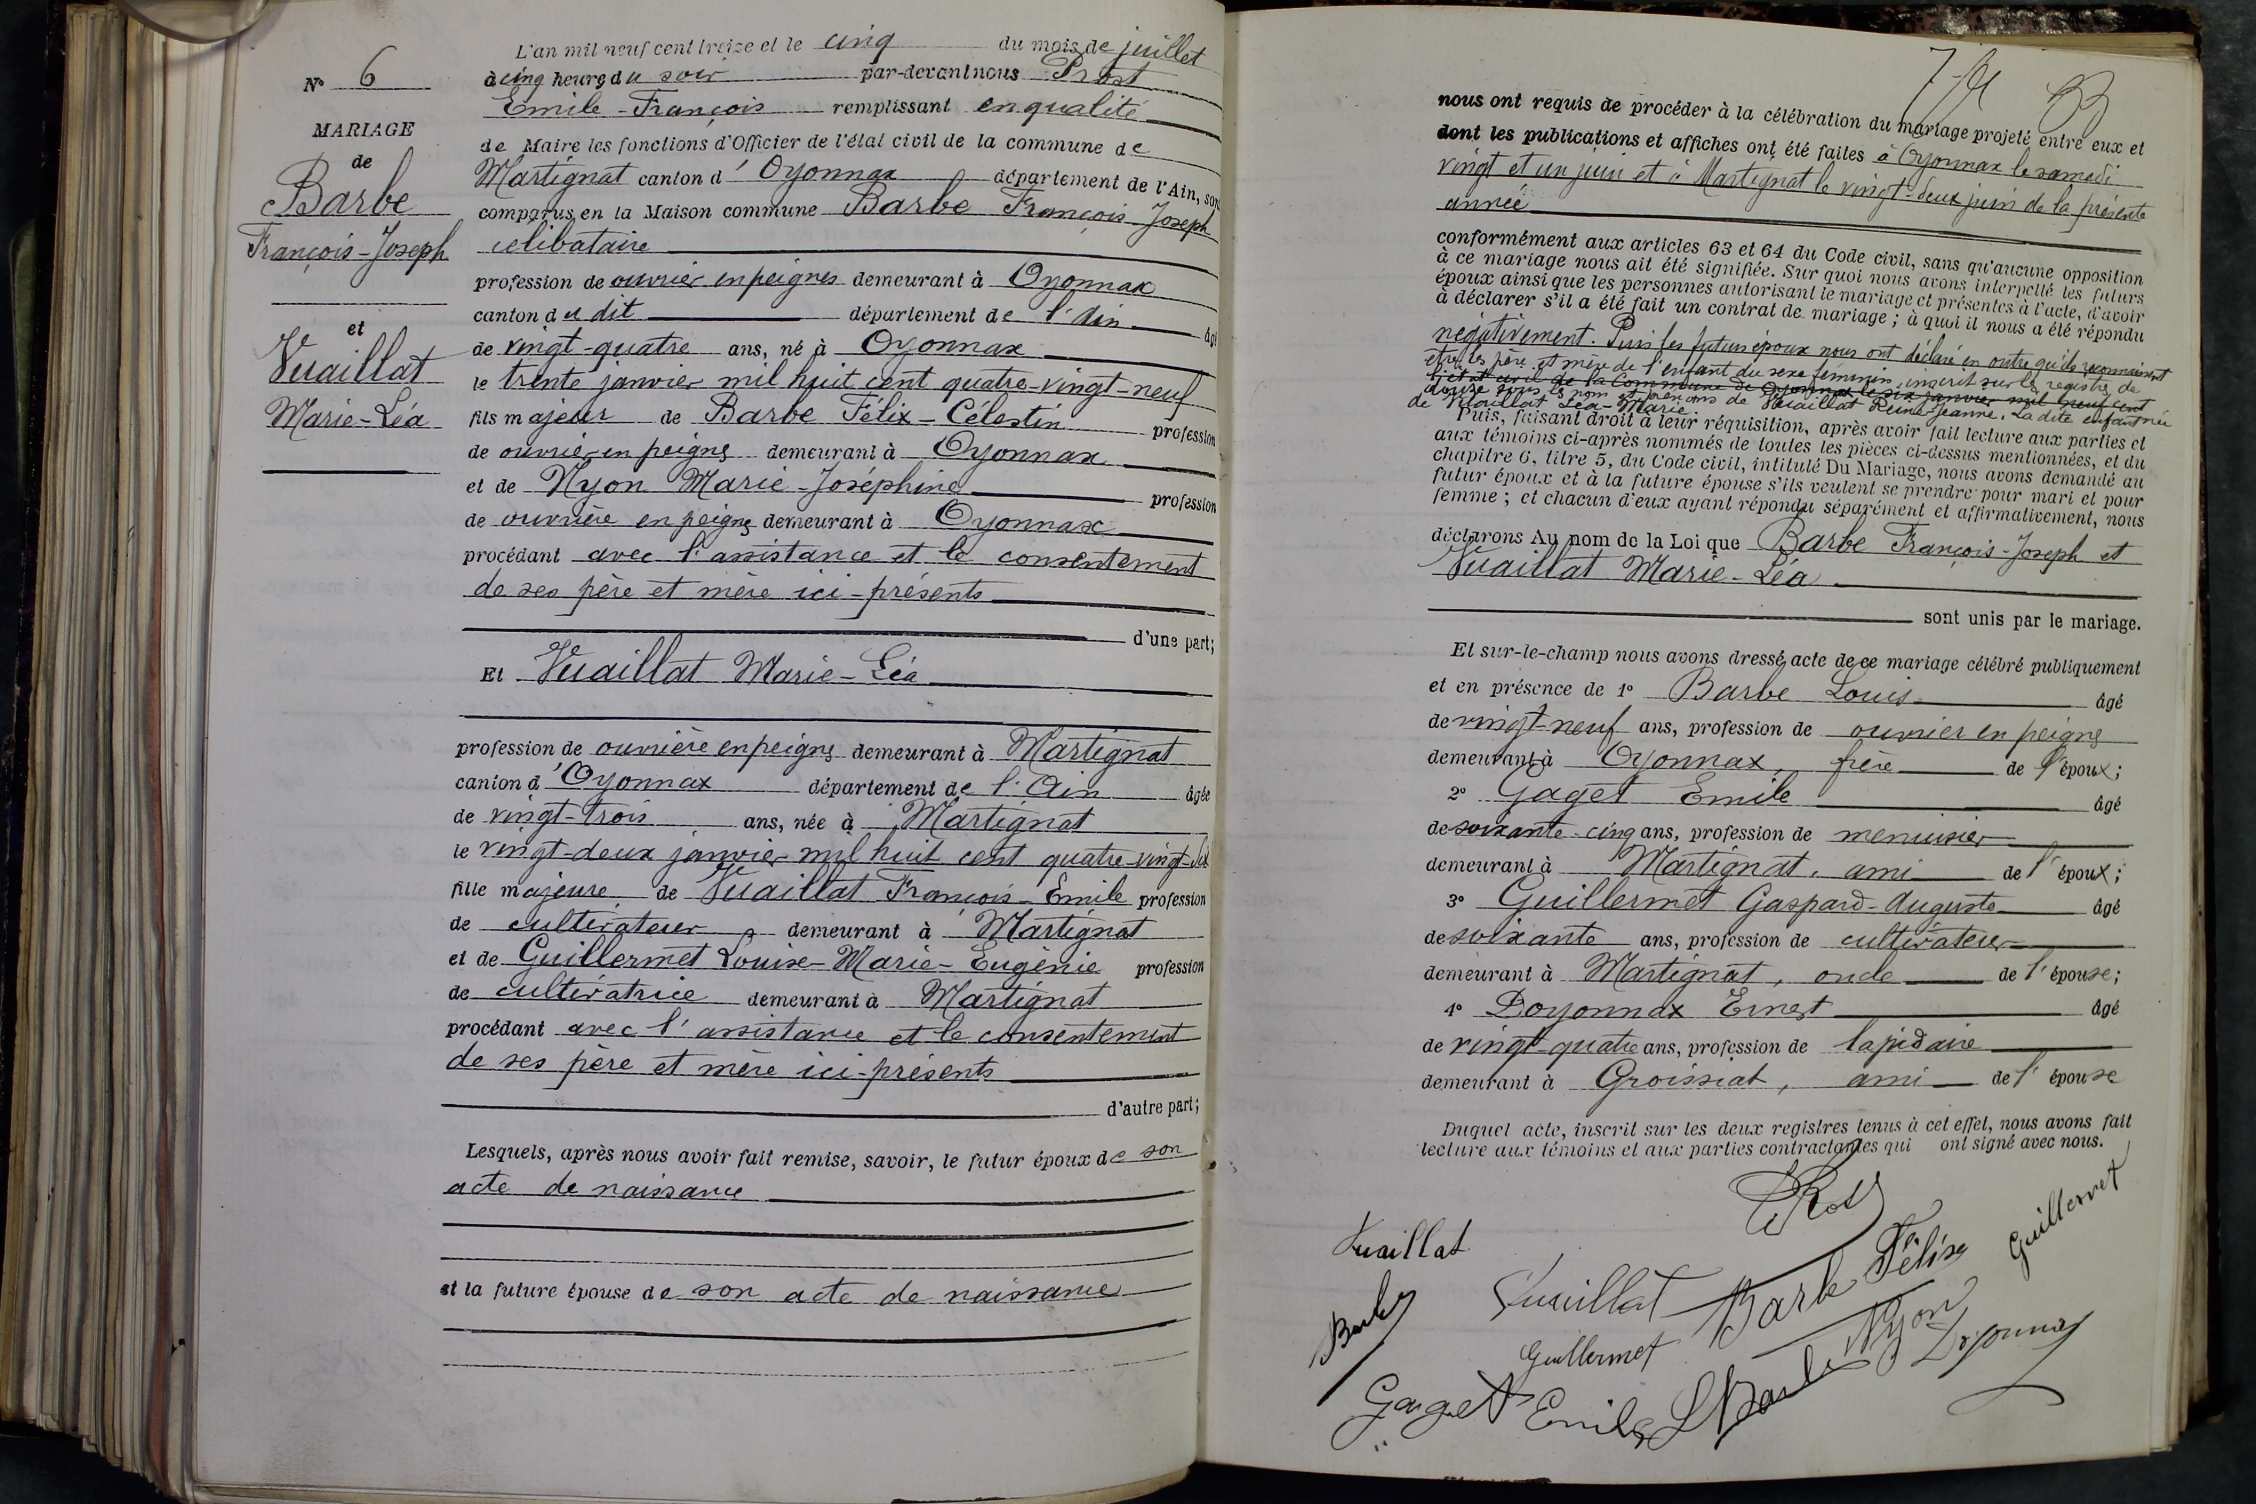 L'an mil neuf cent treize et le cinq du mois de juillet
N° 6
à cinq heures du soir par-devant nous Prost
Emile-François remplissant en qualité
MARIAGE
de Maire les fonctions d'Officier de l'état civil de la commune de
de
Martignat canton d'Oyonnax département de l'Ain, sont
Barbe
comparus en la Maison commune Barbe François-Joseph
François-Joseph
célibataire
profession de ouvrier en peignes demeurant à Oyonnax
canton du dit département de l'Ain âgé
et
de vingt-quatre ans, né à Oyonnax
Vuaillat
le trente janvier mil huit cent quatre-vingt-neuf
Marie-Léa
fils majeur de Barbe Félix-Célestin profession
de ouvrier en peignes demeurant à Oyonnax
et de Nyon Marie-Joséphine profession
de ouvrière en peignes demeurant à Oyonnax
procédant avec l'assistance et le consentement
de ses père et mère ici-présents
d'une part;
Et Vuaillat Marie-Léa
profession de ouvrière en peignes demeurant à Martignat
canton d'Oyonnax département de l'Ain âgée
de vingt-trois ans, née à Martignat
le vingt-deux janvier mil huit cent quatre-vingt-dix
fille majeure de Vuaillat François-Emile profession
de cultivateur demeurant à Martignat
et de Guillermet Louise-Marie-Eugénie profession
de cultivatrice demeurant à Martignat
procédant avec l'assistance et le consentement
de ses père et mère ici-présents
d'autre part;
Lesquels, après nous avoir fait remise, savoir, le futur époux de son
acte de naissance
et la future épouse de son acte de naissance
nous ont requis de procéder à la célébration du mariage projeté entre eux et
dont les publications et affiches ont été faites à Oyonnax le samedi
vingt et un juin et à Martignat le vingt-deux juin de la présente
année
conformément aux articles 63 et 64 du Code civil, sans qu'aucune opposition
à ce mariage nous ait été signifiée. Sur quoi nous avons interpellé les futurs
époux ainsi que les personnes autorisant le mariage et présentes à l'acte, d'avoir
à déclarer s'il a été fait un contrat de mariage; à quoi il nous a été répondu
négativement. Puis les futurs époux nous ont déclaré en outre qu'ils reconnaissent
être les père et mère de l'enfant du sexe féminin, inscrit sur le registre de
l'état civil de la Commune de Oyonnax le six janvier mil neuf cent
douze sous les nom et prénoms de Vuaillat Reine-Jeanne. La dite enfant née
de Vuaillat Léa-Marie.
Puis, faisant droit à leur réquisition, après avoir fait lecture aux parties et
aux témoins ci-après nommés de toutes les pièces ci-dessus mentionnées, et du
chapitre 6, titre 5, du Code civil, intitulé Du Mariage, nous avons demandé au
futur époux et à la future épouse s'ils veulent se prendre pour mari et pour
femme; et chacun d'eux ayant répondu séparément et affirmativement, nous
déclarons Au nom de la Loi que Barbe François-Joseph et
Vuaillat Marie-Léa
sont unis par le mariage.
Et sur-le-champ nous avons dressé acte de ce mariage célébré publiquement
et en présence de 1° Barbe Louis âgé
de vingt-neuf ans, profession de ouvrier en peignes
demeurant à Oyonnax, frère de l'époux;
2° Gaget Emile âgé
de soixante-cinq ans, profession de menuisier
demeurant à Martignat, ami de l'époux;
3° Guillermet Gaspard-Auguste âgé
de soixante ans, profession de cultivateur
demeurant à Martignat, oncle de l'épouse;
4° Doyonnax Ernest âgé
de vingt-quatre ans, profession de lapidaire
demeurant à Groissiat, ami de l'épouse
Duquel acte, inscrit sur les deux registres tenus à cet effet, nous avons fait
lecture aux témoins et aux parties contractantes qui ont signé avec nous.
Prost
Vuaillat
Guillermet
Barbe Félix
Vuaillat
Barbe
Nyon
Guillermet
Doyonnax
Gaget Emile
L Barbe